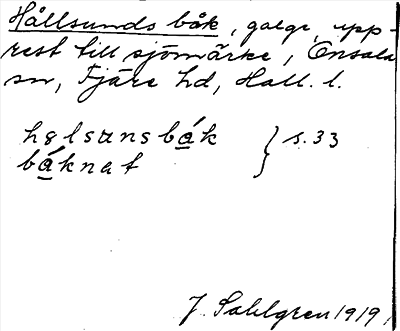 Hållsunds båk, galge, upp-
rest till sjömärke, Onsala
sn, Fjäre hd, Hall. l.
hɵlsunsbák } s. 33
báknat
J. Sahlgren 1919.